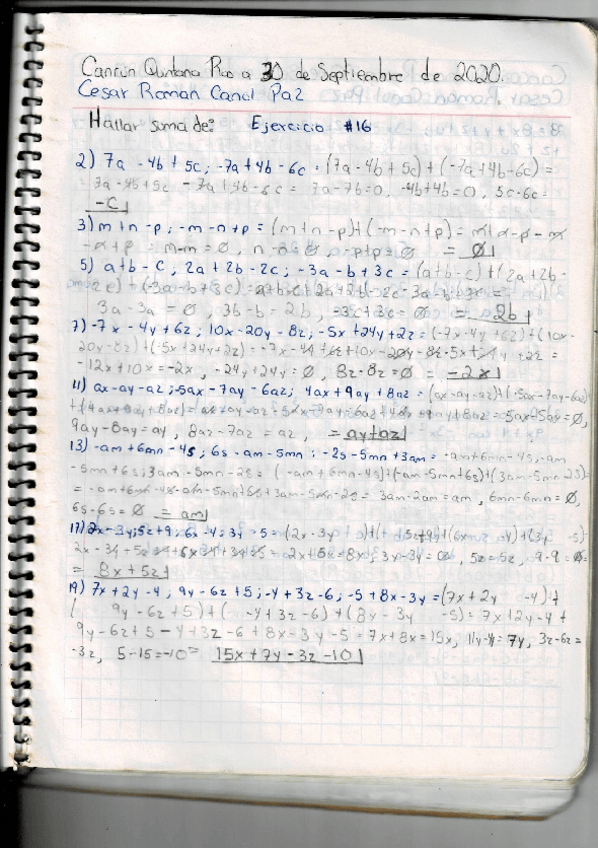 Cancún Quintana Roo a 30 de Septiembre de 2020.
Cesar Roman Canul Paz
Hallar suma de: Ejercicio #16
2) 7a -4b + 5c; -7a + 4b - 6c = (7a - 4b + 5c) + (-7a + 4b - 6c) =
= 7a - 4b + 5c - 7a + 4b - 6c = 7a - 7b = 0, -4b + 4b = 0, 5c - 6c =
-c
3) m + n - p; -m - n + p = (m + n - p) + (-m - n + p) = m + n - p - m
- n + p = m - m = 0, n - n = 0, -p + p = 0 = 0
5) a + b - c; 2a + 2b - 2c; -3a - b + 3c = (a + b - c) + (2a + 2b -
2c) + (-3a - b + 3c) = a + b - c + 2a + 2b - 2c - 3a - b + 3c =
3a - 3a = 0, 3b - b = 2b, -3c + 3c = 0 = 2b
7) -7x - 4y + 6z; 10x - 20y - 8z; -5x + 24y + 2z = (-7x - 4y + 6z) + (10x -
20y - 8z) + (-5x + 24y + 2z) = -7x - 4y + 6z + 10x - 20y - 8z - 5x + 24y + 2z =
-12x + 10x = -2x, -24y + 24y = 0, 8z - 8z = 0 = -2x
11) ax - ay - az; -5ax - 7ay - 6az; 4ax + 9ay + 8az = (ax - ay - az) + (-5ax - 7ay - 6az)
+ (4ax + 9ay + 8az) = ax - ay - az - 5ax - 7ay - 6az + 4ax + 9ay + 8az = 5ax - 5ax = 0,
9ay - 8ay = ay, 8az - 7az = az, = ay + az
13) -am + 6mn - 4s; 6s - am - 5mn; -2s - 5mn + 3am = -am + 6mn - 4s; -am
-5mn + 6s; 3am - 5mn - 2s = (-am + 6mn - 4s) + (-am - 5mn + 6s) + (3am - 5mn - 2s)
= -am + 6mn - 4s - am - 5mn + 6s + 3am - 5mn - 2s = 3am - 2am = am, 6mn - 6mn = 0,
6s - 6s = 0 = am
17) 2x - 3y; 5z + 9; 6x - 4; 3y - 5 = (2x - 3y) + (5z + 9) + (6x - 4) + (3y - 5)
2x - 3y + 5z + 9 + 6x - 4 + 3y - 5 = 2x + 6x = 8x, 3y - 3y = 0, 5z = 5z, 9 - 9 = 0 =
= 8x + 5z
19) 7x + 2y - 4; 9y - 6z + 5; -y + 3z - 6; -5 + 8x - 3y = (7x + 2y - 4) +
( 9y - 6z + 5) + ( -y + 3z - 6) + (8x - 3y - 5) = 7x + 2y - 4 +
9y - 6z + 5 - y + 3z - 6 + 8x - 3y - 5 = 7x + 8x = 15x, 11y - 4y = 7y, 3z - 6z =
-3z, 5 - 15 = -10 = 15x + 7y - 3z - 10